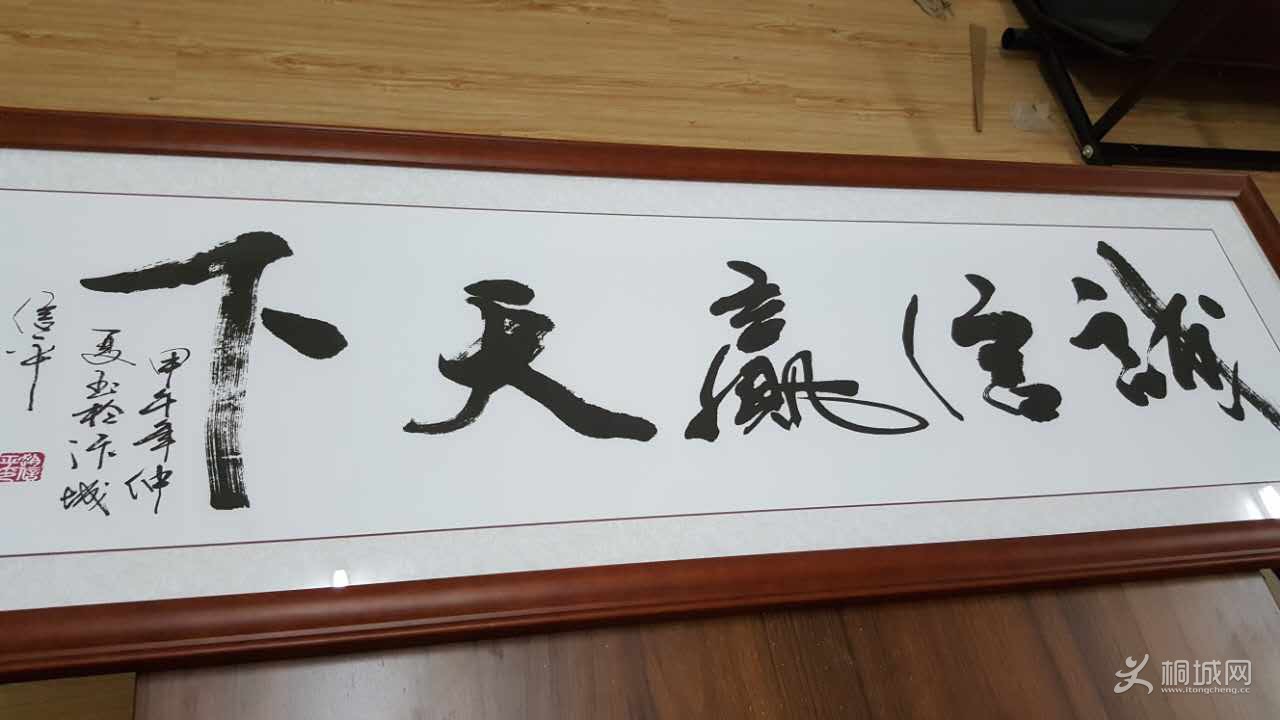 誠信贏天下
甲午年仲
夏書於汴城
信平
桐城网
www.itongcheng.cc